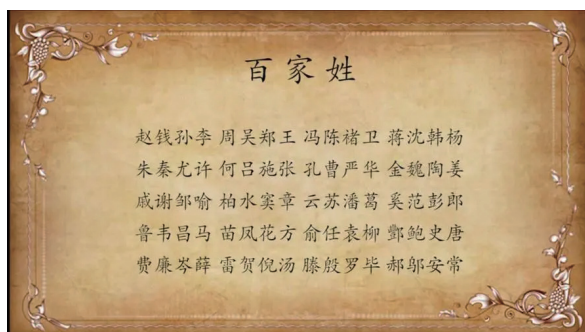 百家姓
赵钱孙李 周吴郑王 冯陈褚卫 蒋沈韩杨
朱秦尤许 何吕施张 孔曹严华 金魏陶姜
戚谢邹喻 柏水窦章 云苏潘葛 奚范彭郎
鲁韦昌马 苗凤花方 俞任袁柳 酆鲍史唐
费廉岑薛 雷贺倪汤 滕殷罗毕 郝邬安常